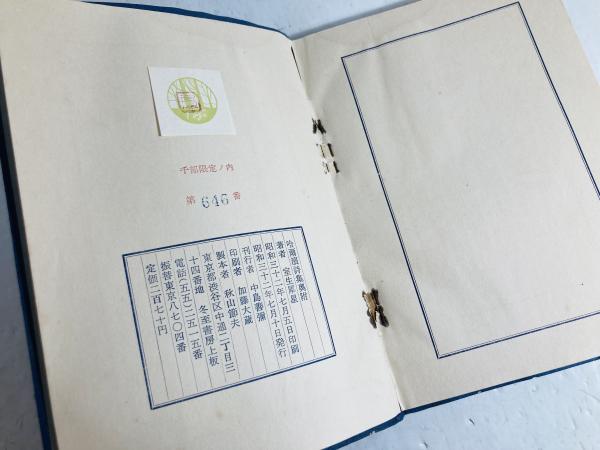 千部限定ノ内
第 646 番
哈爾濱詩集奥附
著者 室生犀星
昭和三十二年七月五日印刷
昭和三十二年七月十日発行
刊行者 中島善彌
印刷者 加藤大藏
製本者 秋山節夫
東京都渋谷区中通二丁目三
十四番地 冬至書房上板
電話(五五)二五一五番
振替東京八七〇四番
定価二百七十円